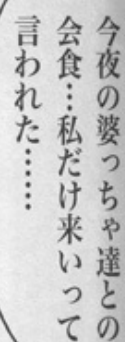 今夜の婆っちゃ達との
会食…私だけ来いって
言われた……